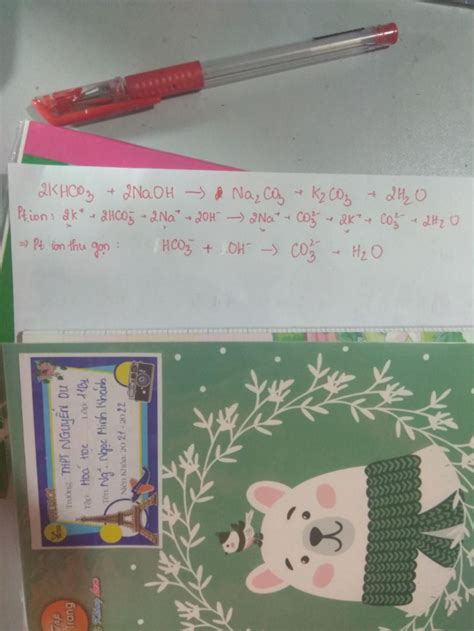 2KHCO₃ + 2NaOH → Na₂CO₃ + K₂CO₃ + 2H₂O
Pt ion: 2K⁺ + 2HCO₃⁻ + 2Na⁺ + 2OH⁻ → 2Na⁺ + CO₃²⁻ + 2K⁺ + CO₃²⁻ + 2H₂O
⇒ Pt ion thu gọn : HCO₃⁻ + OH⁻ → CO₃²⁻ + H₂O
Trường: THPT NGUYỄN DU
Tập: Hoá học Lớp:
Tên: Ng~ Ngọc Minh Khánh
Niên Khóa: 2021-2022